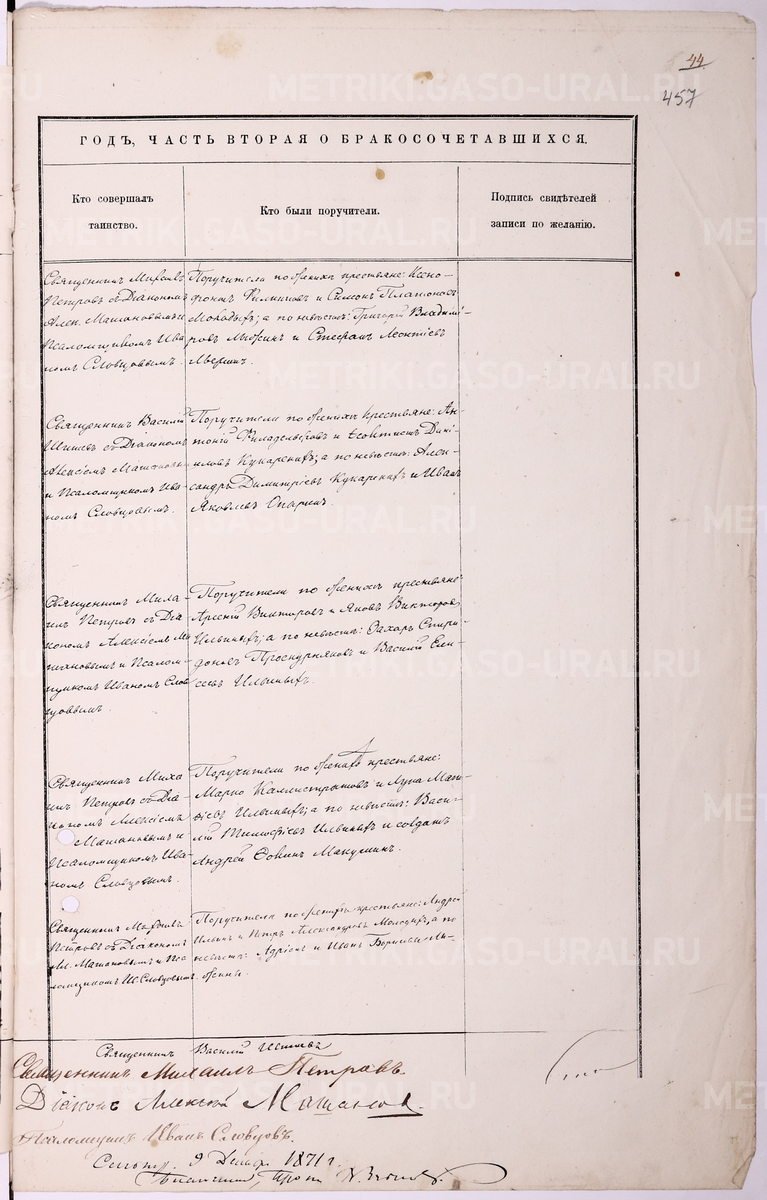 44.
457
ГОДЪ, ЧАСТЬ ВТОРАЯ О БРАКОСОЧЕТАВШИХСЯ.
Кто совершалъ
таинство.
Кто были поручители.
Подпись свидѣтелей
записи по желанію.
Священникъ Михаилъ
Петровъ съ Діакономъ
Алек. Машановымъ и
Псаломщикомъ Ива-
номъ Словцовымъ.
Поручители по женихѣ крестьяне: Ксено-
фонтъ Филиповъ и Симеонъ Платоновъ
Молодыхъ; а по невѣстѣ: Григорій Владимі-
ровъ и Стефанъ Леонтіевъ
Священникъ Василій
съ Діакономъ
Алексіемъ Машановы
и Псаломщикомъ Ива-
номъ Словцовымъ.
Поручители по женихѣ крестьяне: Ан-
тоній Филадельфовъ и Ѳеоктистъ Дани-
иловъ Кукаренихъ; а по невѣстѣ: Алек-
сандръ Димитріевъ Кукаренихъ и Иванъ
Яковлевъ Опаринъ.
Священникъ Миха-
илъ Петровъ съ Діа-
кономъ Алексіемъ Ма-
шановымъ и Псалом-
щикомъ Иваномъ Слов
цовымъ.
Поручители по женихѣ крестьяне:
Арсеній Викторовъ и Яковъ Викторовъ
Ильиныхъ; а по невѣстѣ: Захаръ Спири-
доновъ Проскурняковъ и Василій Ели-
сеевъ Ильиныхъ.
Священникъ Миха
илъ Петровъ съ Діа-
кономъ Алексіемъ
Машановымъ и
Псаломщикомъ Ива-
номъ Словцовымъ.
Поручители по женихѣ крестьяне:
Марко Каллистратовъ и Лука Мат-
ѳіевъ Ильиныхъ; а по невѣстѣ: Васи-
лій Тимоѳіевъ Ильиныхъ и солдатъ
Андрей Ѳоминъ Макушинъ.
Священникъ Михаилъ
Петровъ съ Діакономъ
Ал. Машановымъ и Пса
ломщикомъ Ив. Словцовымъ.
Поручители по женихѣ крестьяне: Андрей
Ильинъ и Петръ Александровъ Молодыхъ, а по
невѣстѣ: Адріанъ и Иванъ Борисовы
Священникъ Василій
Священникъ Михаилъ Петровъ.
Діаконъ Алексій Машановъ.
Псаломщикъ Иванъ Словцовъ.
9 Декабр. 1871 г.
METRIKI.GASO-URAL.RU